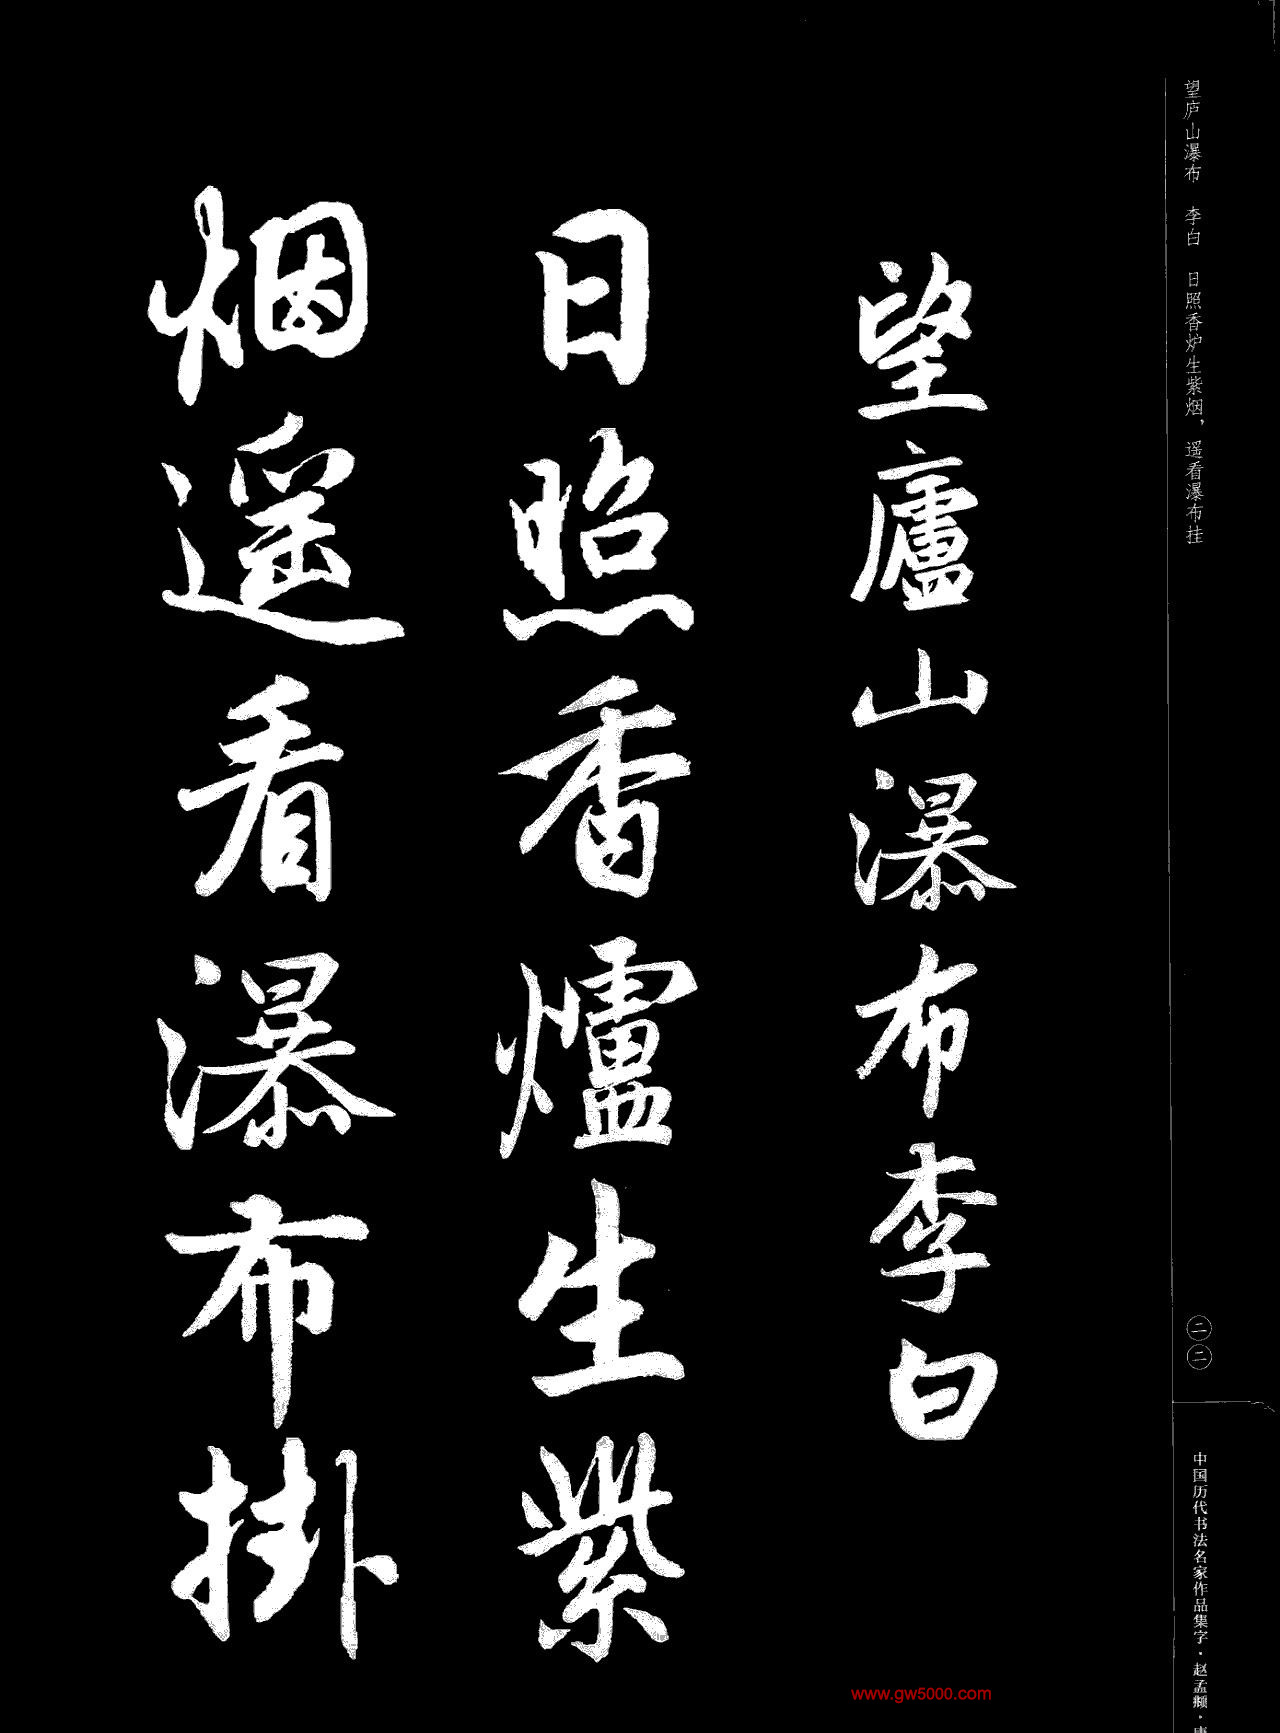 望庐山瀑布 李白 日照香炉生紫烟，遥看瀑布挂
二二
中国历代书法名家作品集字·赵孟頫·
望廬山瀑布李白
日照香爐生紫
烟遥看瀑布掛
www.gw5000.com